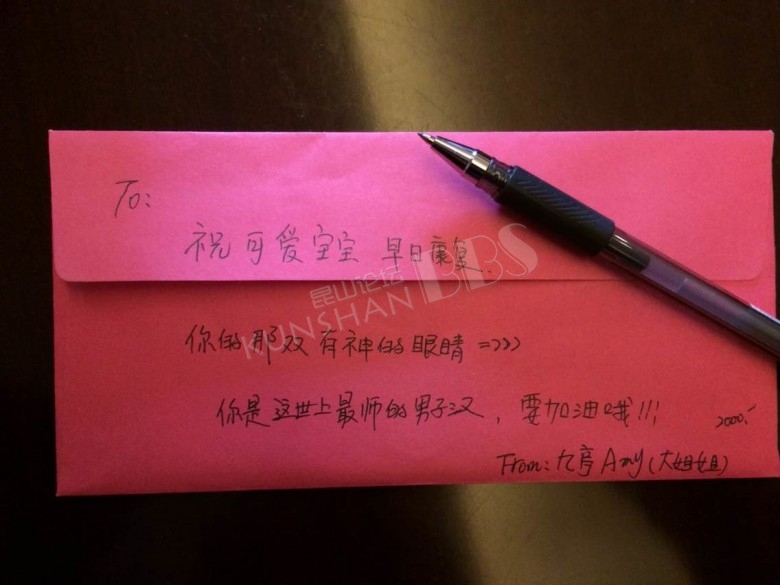 To:
祝可爱宝宝 早日康复.
昆山论坛
KUNSHAN BBS
你的那双有神的眼睛 =>>>
你是这世上最师的男子汉，要加油哦!!!
2000.-
From: 九亭 Amy (大姐姐)